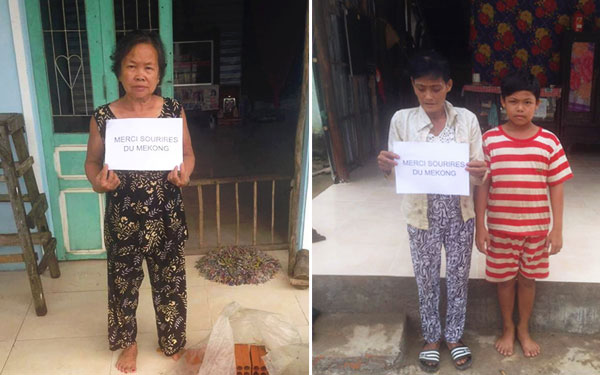 MERCI SOURIRES
DU MEKONG
MERCI SOURIRES
DU MEKONG